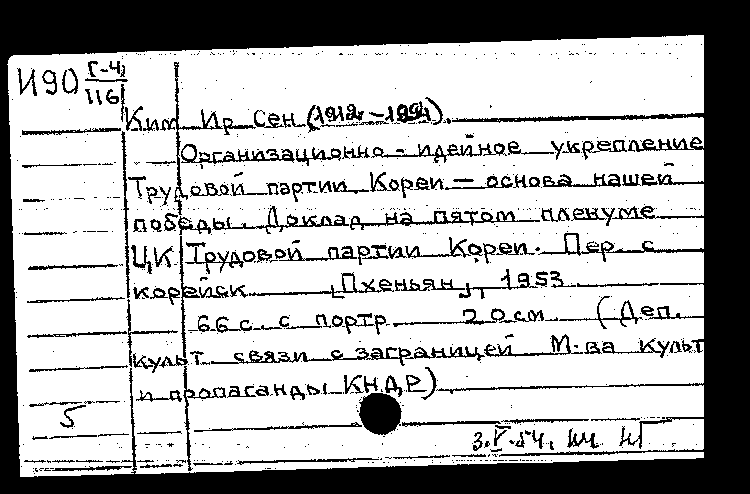 И90 Г-4
116
Ким Ир Сен (1912-1994).
Организационно-идейное укрепление
Трудовой партии Кореи — основа нашей
победы. Доклад на пятом пленуме
ЦК Трудовой партии Кореи. Пер. с
корейск. [Пхеньян], 1953.
66 с. с портр. 20 см (Деп.
культ. связи с заграницей М-ва культ
и пропаганды КНДР).
5
3.V.54.